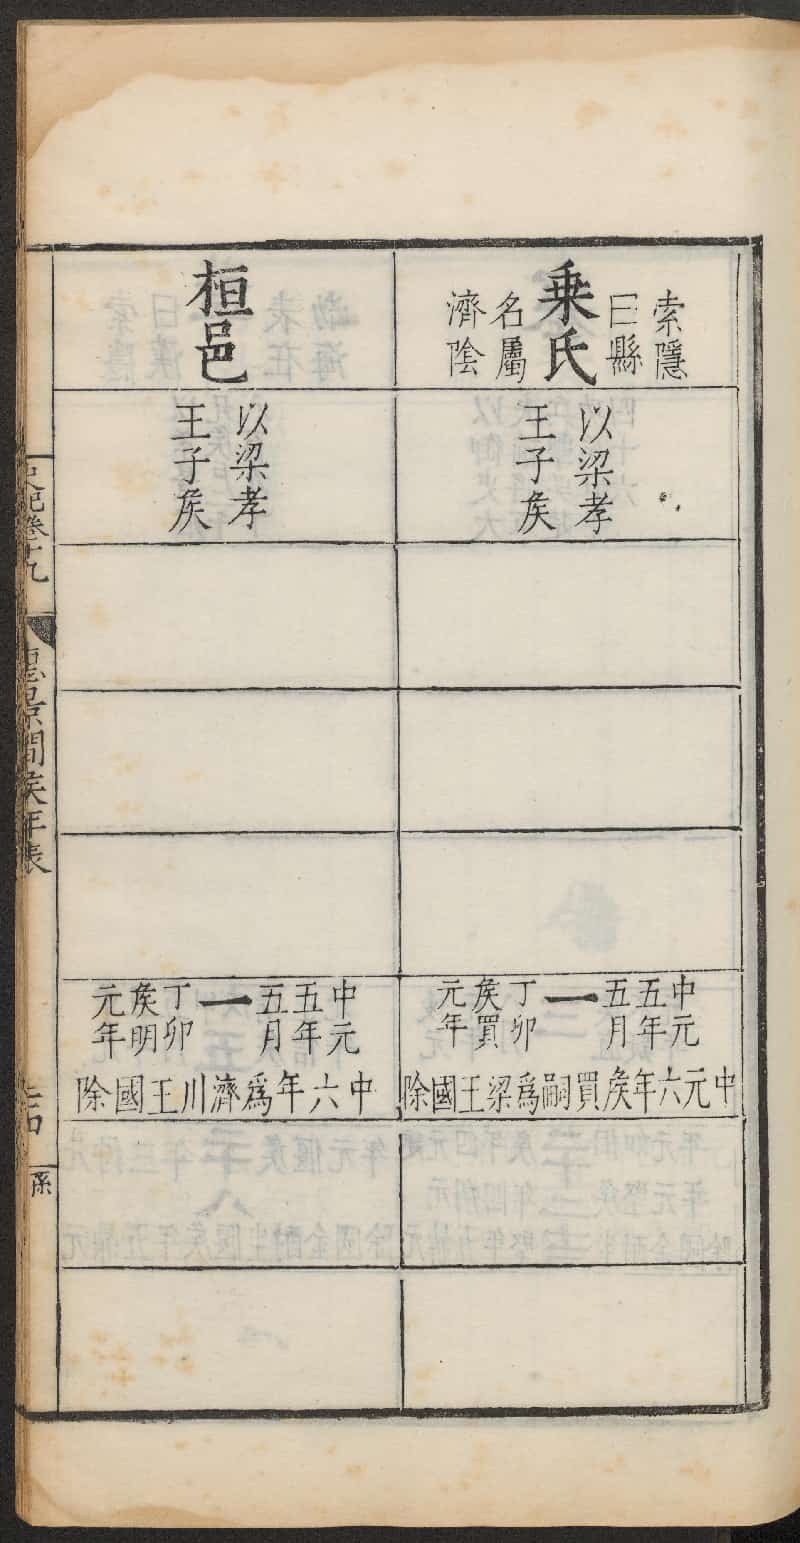 乗氏
索隱
曰縣
名屬
濟陰
以梁孝
王子矦
中元
五年
五月
一
丁卯
矦買
元年
中元六年矦買嗣爲梁王國除
桓邑
以梁孝
王子矦
中元
五年
五月
一
丁卯
矦明
元年
中六年爲濟川王國除
史記卷十九
惠景間矦年表